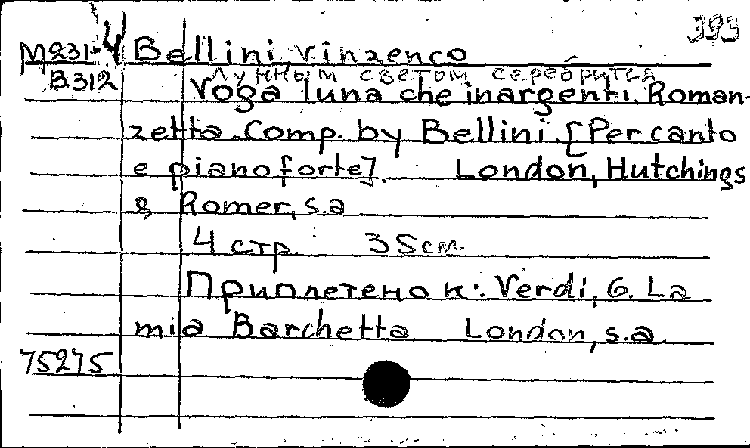 393
М231-4 Bellini, Vinzenco
B312 Лунным светом серебрится
Voga luna che inargenti. Roman-
zetta. Comp. by Bellini. [Per canto
e pianoforte]. London, Hutchings
& Romer, s.a
4 стр. 35см.
Приплетено к: Verdi, G. La
mia Barchetta London, s.a.
75275